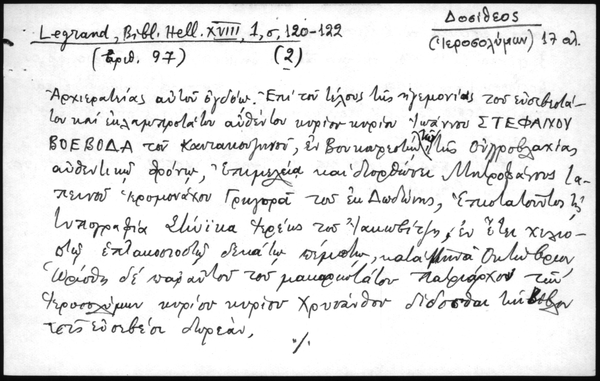 Legrand, Bibl. Hell. XVIII, 1, σ, 120-122
Δοσίθεος
(Ἱεροσολύμων) 17 αι.
(ἀριθ. 97) (2)
Ἀρχιερατείας αὐτοῦ ὀγδόῳ. Ἐπὶ τοῦ τέλους τῆς ἡγεμονίας τοῦ εὐσεβεστά-
του καὶ ἐκλαμπροτάτου αὐθέντου κυρίου κυρίου Ἰωάννου ΣΤΕΦΑΝΟΥ
ΒΟΕΒΟΔΑ τοῦ Καντακουζηνοῦ, ἐν Βουκουρεστίῳ τῆς Οὑγγροβλαχίας
αὐθεντικῷ θρόνῳ, Ἐπιμελείᾳ καὶ διορθώσει Μητροφάνους τα-
πεινοῦ ἱερομονάχου Γρηγορᾶ τοῦ ἐκ Δωδώνης, Ἐπιστατοῦντος τῇ
τυπογραφίᾳ Στόϊκα ἱερέως τοῦ Ἰακωβίτζη, ἐν ἔτει χιλιο-
στῷ ἑπτακοσιοστῷ δεκάτῳ πέμπτῳ, κατὰ μῆνα Ὀκτώβριον
Ὡρίσθη δὲ παρ' αὐτοῦ τοῦ μακαριωτάτου Πατριάρχου τῶν
Ἱεροσολύμων κυρίου κυρίου Χρυσάνθου δίδοσθαι τὴν Βίβλον
τοῖς εὐσεβέσι δωρεάν,
./.